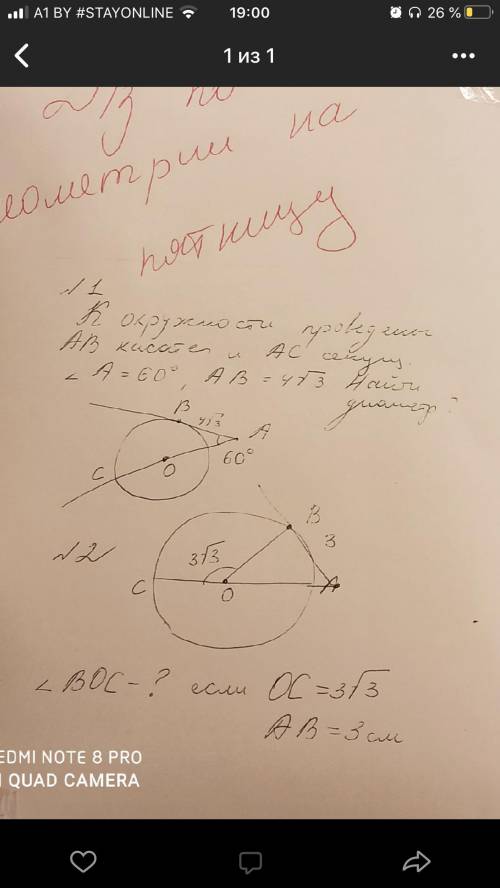 A1 BY #STAYONLINE 19:00 26 %
1 из 1
ДЗ по
геометрии на
пятницу
№1
К окружности проведены
АВ касател и АС секущ.
∠ А = 60°, АВ = 4√3 Найти
диаметр?
В 4√3 А
60°
О
С
№2
В
3√3 3
С О А
∠ВОС - ? если ОС = 3√3
АВ = 3 см
REDMI NOTE 8 PRO
AI QUAD CAMERA